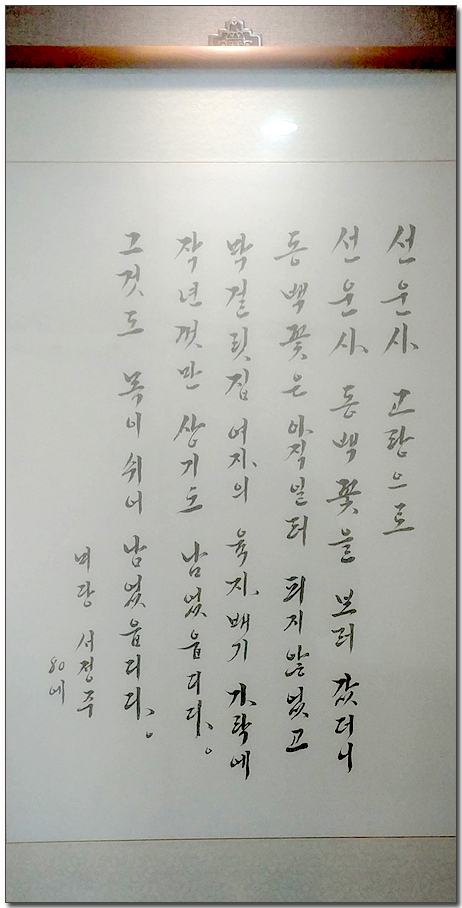 선운사 고랑으로
선운사 동백꽃을 보러 갔더니
동백꽃은 아직 일러 피지 않었고
막걸릿집 여자의 육자배기 가락에
작년것만 상기도 남었읍디다。
그것도 목이 쉬어 남었읍디다。
미당 서정주
80에